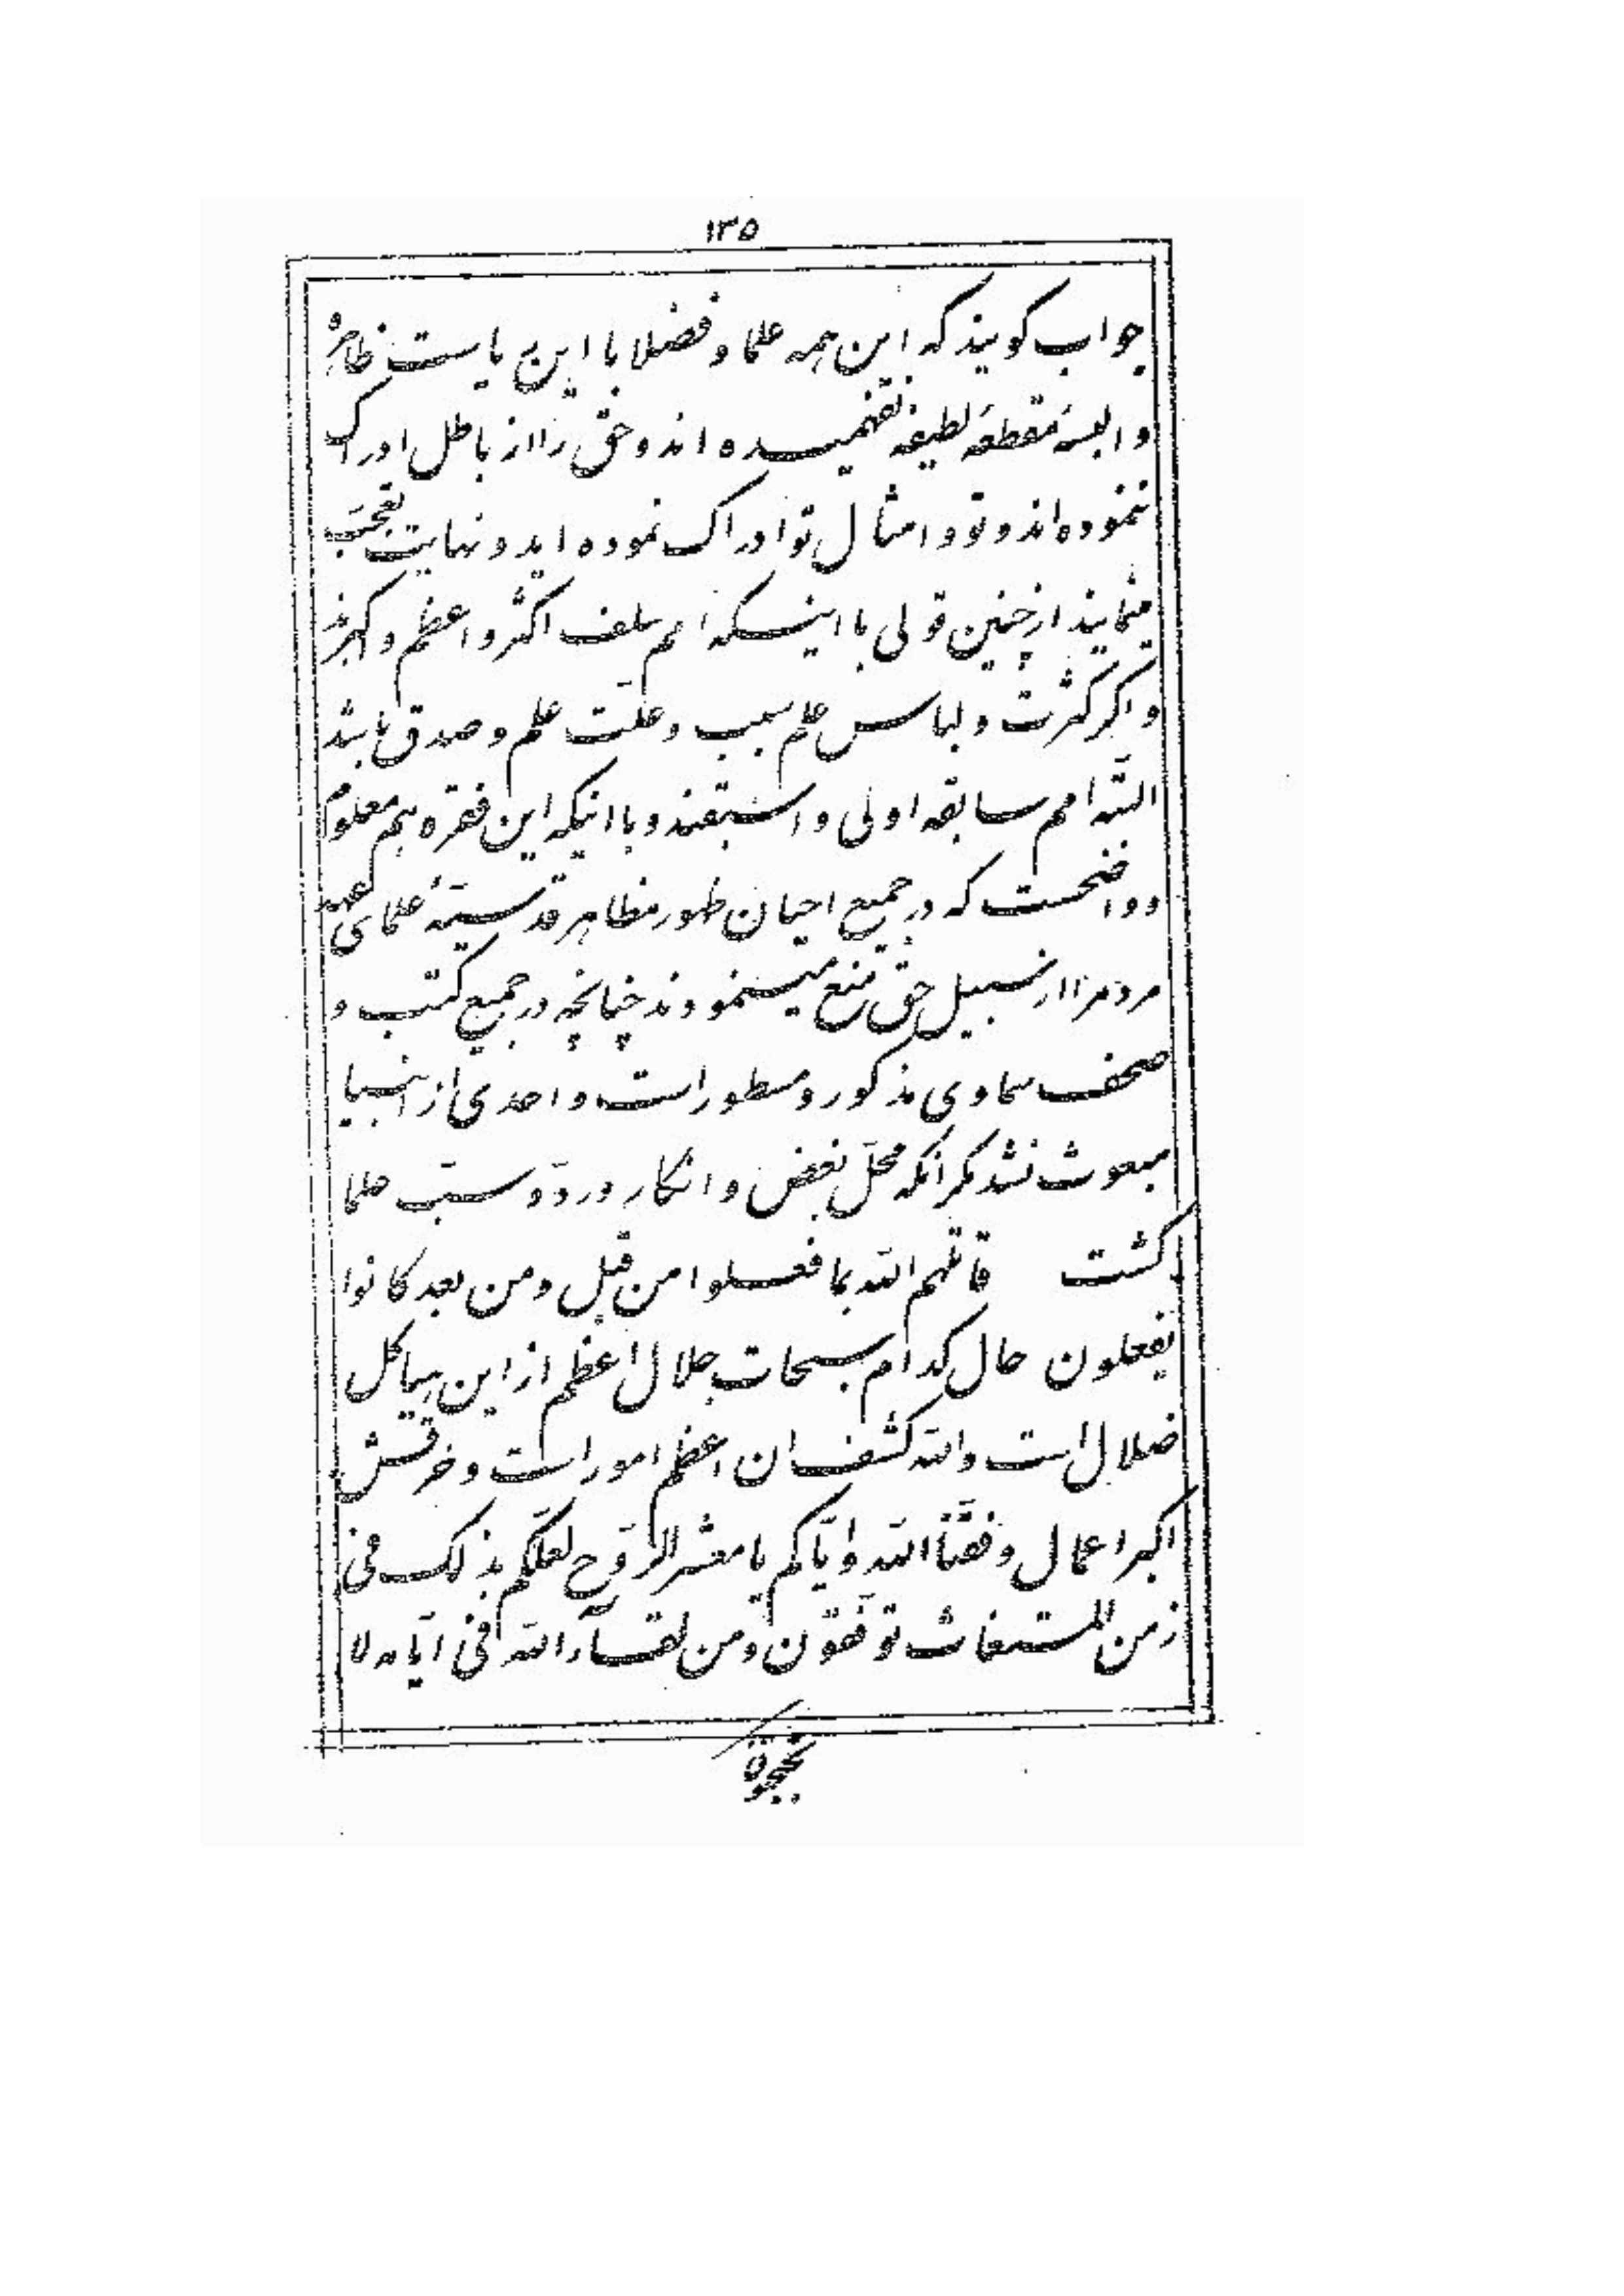 ۱۳۵
جواب کویند که این همه علما و فضلا با این ریاست ظاهره
و البسهٔ مقطعهٔ لطیفه نفهمیده اند و حقّ را از باطل ادراک
ننموده‌اند و تو و امثال تو ادراک نموده اید و نهایت تعجّب
مینمایند از چنین قولی با اینکه امم سلف اکثر و اعظم و اکبرند
و اکر کثرت و لباس علم سبب و علّت علم و صدق باشد
البتّه امم سابقه اولی و اسبقند و با اینکه این فقره هم معلوم
و واضحست که در جمیع احیان ظهور مظاهر قدسیّه علمای عهد
مردم را از سبیل حقّ منع مینمودند چنانچه در جمیع کتب و
صحف سماوی مذکور و مسطور است و احدی از انبیا
مبعوث نشد مکر آنکه محلّ بغض و انکار و ردّ و سبّ علما
کشت قاتلهم اللّه بما فعلوا من قبل و من بعد کانوا
یفعلون حال کدام سبحات جلال اعظم از این هیاکل
ضلال است واللّه کشف ان اعظم امور است و خرقش
اکبر اعمال وفّقنا اللّه و ایّاکم یا معشر الرّوح لعلّکم بذلک فی
زمن المستغاث توفّقون و من لقآء اللّه فی ایّامه لا
تحتجبون